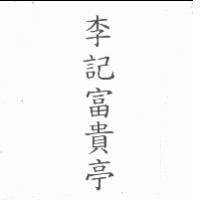 李記富貴亭